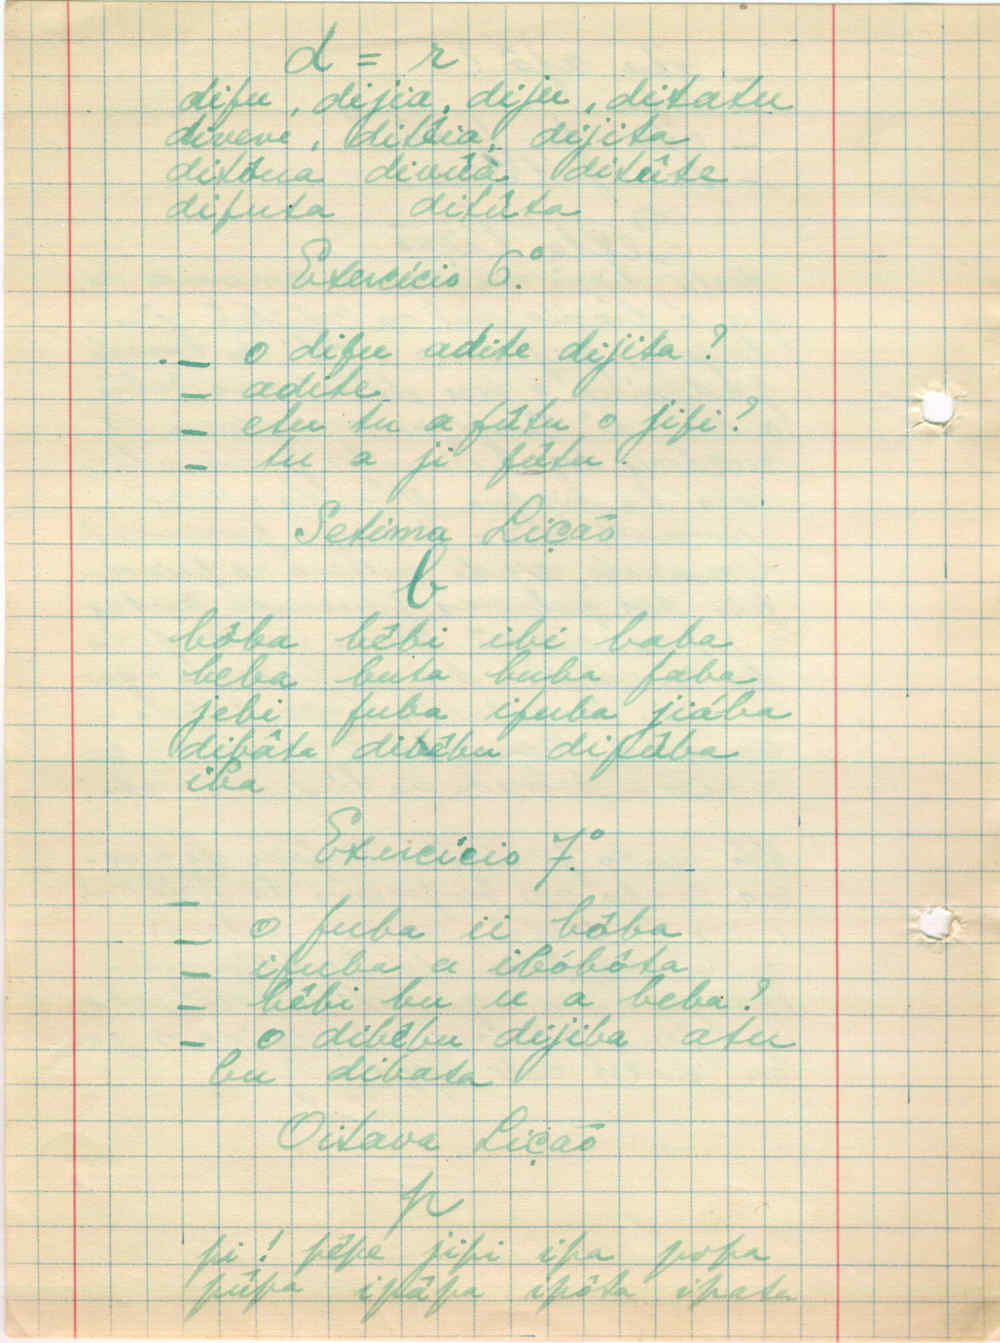 d = r
difu, dijia, diju, ditatu
diveve, dibia, dijita
ditôna divuà ditûte
difuta ditûta
Exercício 6.º
— o difu adite dijita?
— adite
— etu tu a fûtu o jipi?
— tu a ji fûtu.
Setima Lição
b
bôba bêbi ibi baba
beba buta buba faba
jebi fuba ifuba jiába
dibâta dibêbu difûba
iba
Exercício 7.º
— o fuba ii bôba
— ifuba u ibóbóta
— bêbi bu u a beba?
— o dibêbu dijiba atu
bu dibata
Oitava Lição
p
pi! pêpe jipi ipa popa
pûpa ipâpa ipôta ipata